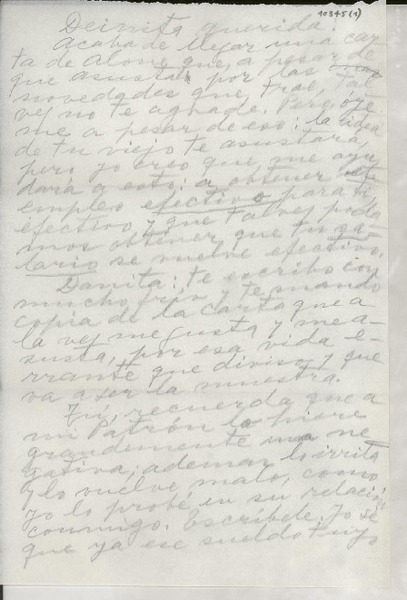 10345(1)
Deinita querida:
Acaba de llegar una car-
ta de Alone que, a pesar de
que asusta por las
novedades que trae, tal
vez no te agrade. Pero oye
me a pesar de eso: la idea
de tu viejo te asustará,
pero yo creo que me ayu
daría a esto: a obtener
empleo efectivo para ti
efectivo y que talvez poda
mos obtener que tu sa-
lario se vuelve efectivo.
Danita: te escribo con
mucho frío y te mando
copia de la carta que a
la vez me gusta y me a-
susta, por esa vida e-
rrante que diviso y que
va a ser la nuestra.
Tú, recuerda que a
mi Patrón lo hiere
grandemente una ne
gativa; ademas lo irrita
y lo vuelve malo, como
yo lo probé en su relación
conmigo. Escríbele. Yo sé
que ya ese sueldo tuyo